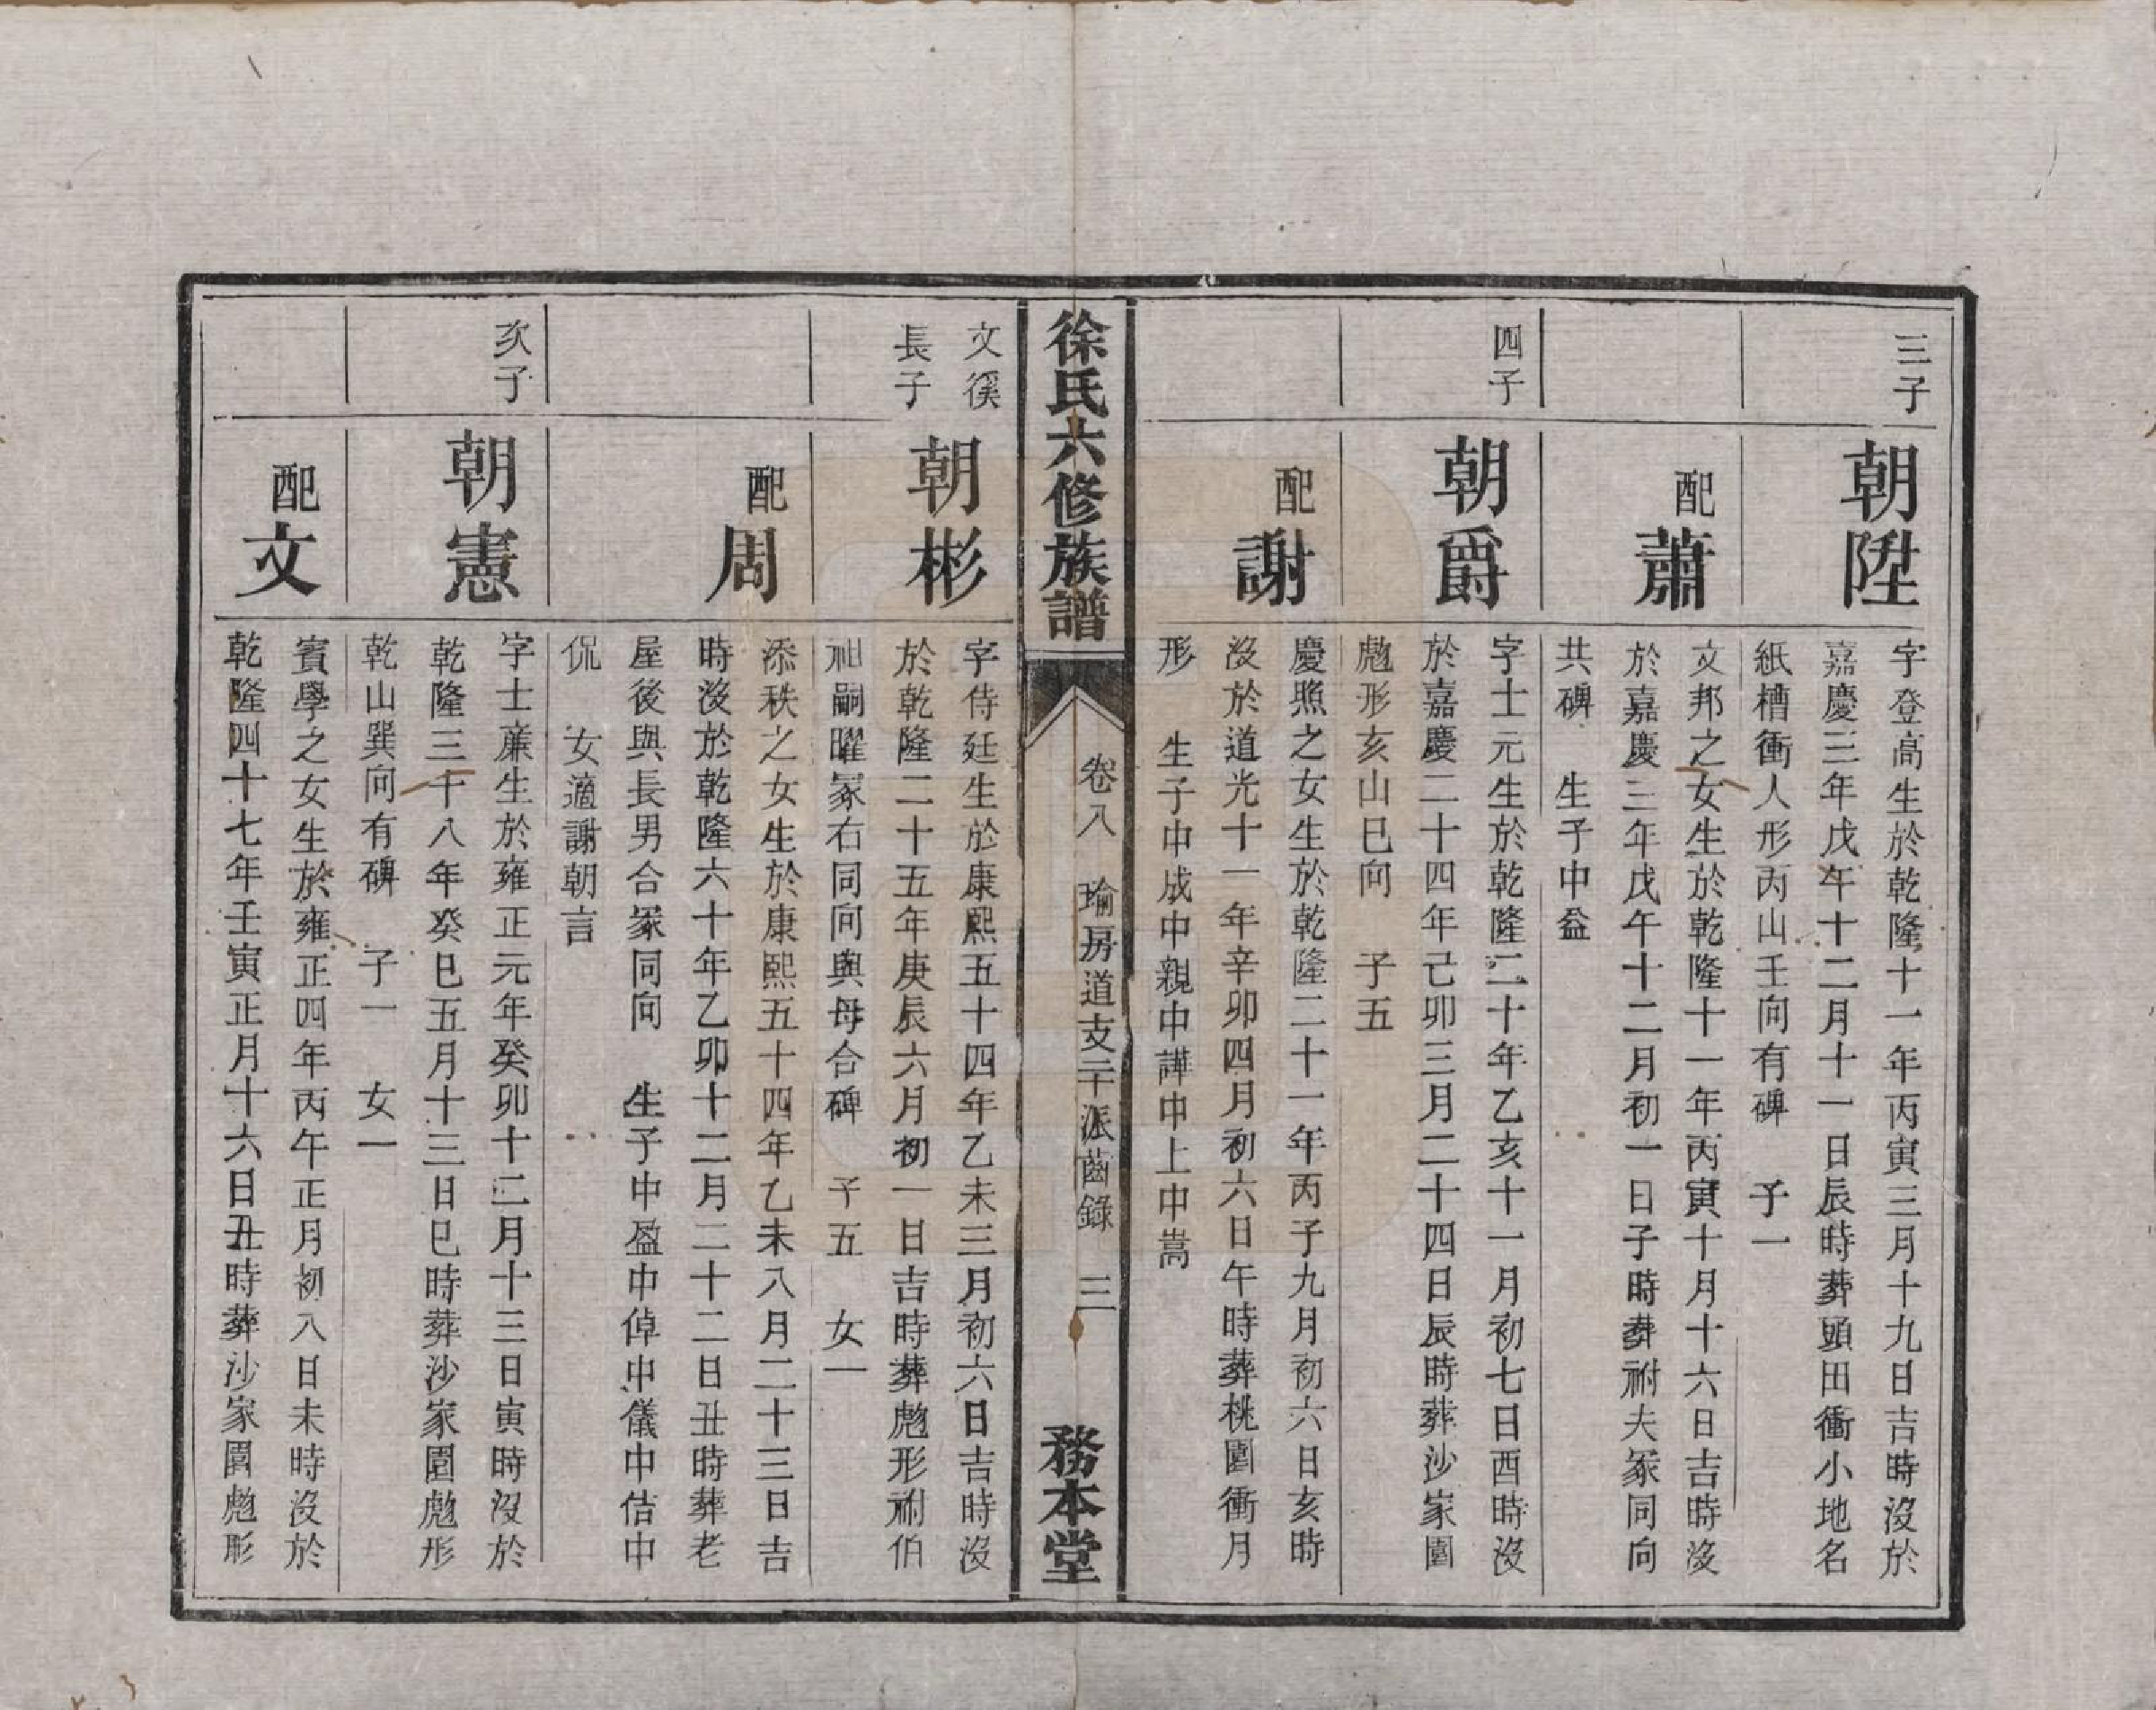 三子
朝陞
字登高生於乾隆十一年丙寅三月十九日吉時沒於
嘉慶三年戊午十二月十一日辰時葬頭田衝小地名
紙槽衝人形丙山壬向有碑　子一
配蕭
文邦之女生於乾隆十一年丙寅十月十六日吉時沒
於嘉慶三年戊午十二月初一日子時葬祔夫冢同向
共碑　生子中益
四子
朝爵
字士元生於乾隆二十年乙亥十一月初七日酉時沒
於嘉慶二十四年己卯三月二十四日辰時葬沙家園
虺形亥山巳向　子五
配謝
慶熊之女生於乾隆二十一年丙子九月初六日亥時
沒於道光十一年辛卯四月初六日午時葬桃園衝月
形　生子中成中親中譁中上中嵩
徐氏六修族譜
卷八　瑜房道支三十派齒錄　三
務本堂
文徯
長子
朝彬
字侍廷生於康熙五十四年乙未三月初六日吉時沒
於乾隆二十五年庚辰六月初一日吉時葬虺形祔伯
祖嗣曜冢右同向與母合碑　子五　女一
配周
添秩之女生於康熙五十四年乙未八月二十三日吉
時沒於乾隆六十年乙卯十二月二十二日丑時葬老
屋後與長男合冢同向　生子中盈中倬中儀中佶中
侃　女適謝朝言
次子
朝憲
字士蓭生於雍正元年癸卯十二月十三日寅時沒於
乾隆三十八年癸巳五月十三日巳時葬沙家園虺形
乾山巽向有碑　子一　女一
配文
賓學之女生於雍正四年丙午正月初八日未時沒於
乾隆四十七年壬寅正月十六日丑時葬沙家園虺形